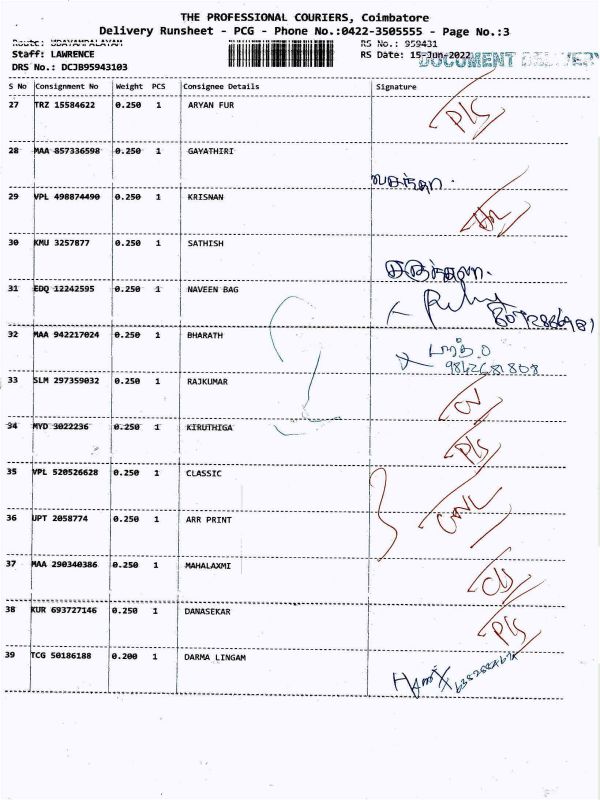 THE PROFESSIONAL COURIERS, Coimbatore
Delivery Runsheet - PCG - Phone No.:0422-3505555 - Page No.:3
Route: UDAYAMPALAYAM RS No.: 959431
Staff: LAWRENCE RS Date: 15-Jun-2022 DOCUMENT DELIVERY
DRS No.: DCJB95943103
S No Consignment No Weight PCS Consignee Details Signature
27 TRZ 15584622 0.250 1 ARYAN FUR
P/S
28 MAA 857336598 0.250 1 GAYATHIRI
வசந்தா
29 VPL 498874490 0.250 1 KRISNAN
30 KMU 3257877 0.250 1 SATHISH
31 EDQ 12242595 0.250 1 NAVEEN BAG
32 MAA 942217024 0.250 1 BHARATH
9842681808
33 SLM 297359032 0.250 1 RAJKUMAR
34 MYD 3022236 0.250 1 KIRUTHIGA
P/S
35 VPL 520526628 0.250 1 CLASSIC
36 UPT 2058774 0.250 1 ARR PRINT
37 MAA 290340386 0.250 1 MAHALAXMI
38 KUR 693727146 0.250 1 DANASEKAR
P/S
39 TCG 50186188 0.200 1 DARMA LINGAM